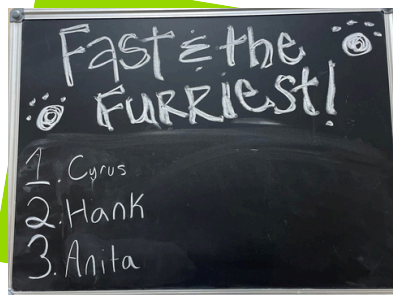 Fast & the
Furriest!
1. Cyrus
2. Hank
3. Anita